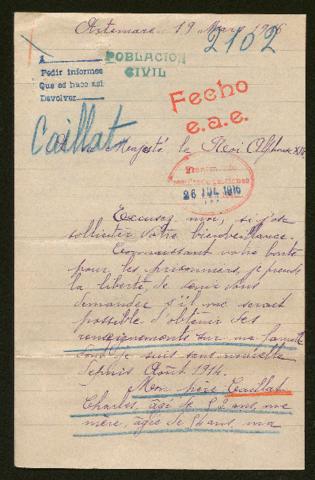 Artemare 19 Mars 1916
2102
A
Pedir informes
Que se haco asi
Devolver
POBLACION
CIVIL
Fecho
e.a.e.
Caillat
A sa Majesté le Roi Alphonse XIII
26 JUL 1916
Excusez moi, si j'ose
solliciter votre bienveillance.
Connaissant votre bonté
pour les prisonniers, je prends
la liberté, de venir vous
demander s'il me serait
possible d'obtenir des
renseignements sur ma famille
dont je suis sans nouvelle
depuis Août 1914.
Mon père Caillat
Charles, âgé de 52 ans, ma
mère, âgée de 54 ans, ma